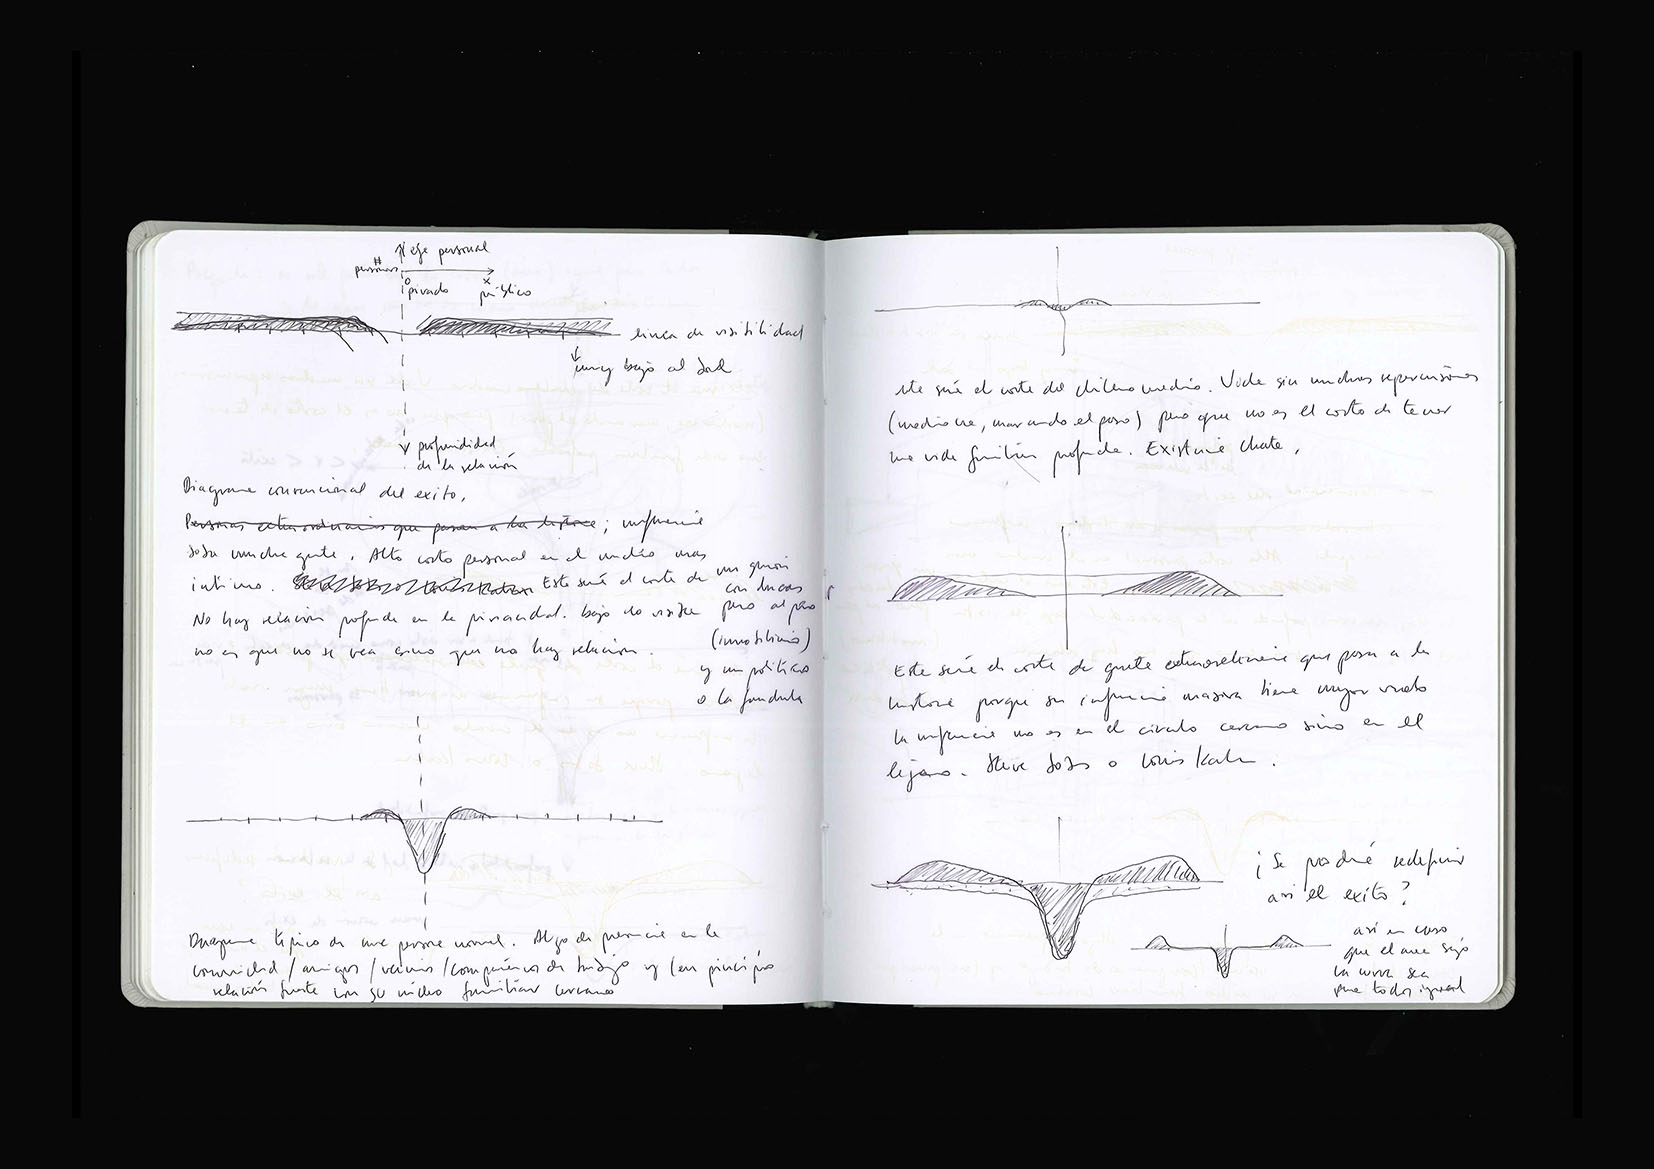 eje personal
# personas
0 x
privado público
línea de visibilidad
muy bajo al
profundidad
de la relación
Diagrama convencional del exito.
Personas extraordinarias que pasan a la historia; influencia
sobre mucha gente. Alto costo personal en el undio mas
intimo. Este sería el corte de un
No hay relación profunda en la privacidad. bajo lo visible pero
no es que no se vea sino que no hay relación. (inmobiliario)
y un político
o la farandula
Diagrama típico de una persona normal. Algo de presencia en la
comunidad / amigos / vecinos / compañeros de trabajo y (en principio
relación fuerte con su núcleo familiar cercano
este sería el corte del chileno medio. Vida sin muchas repercusiones
(mediocre, marcando el paso) pero que no es el costo de tener
una vida familiar profunda. Existencia chata.
Este sería el corte de gente extraordinaria que pasa a la
historia porque su influencia masiva tiene mayor vuelo
la influencia no es en el circulo cercano sino en el
lejano. Steve Jobs o Louis Kahn.
¿Se podrá redefinir
asi el exito?
asi en caso
que el area bajo
la curva sea
para todos igual